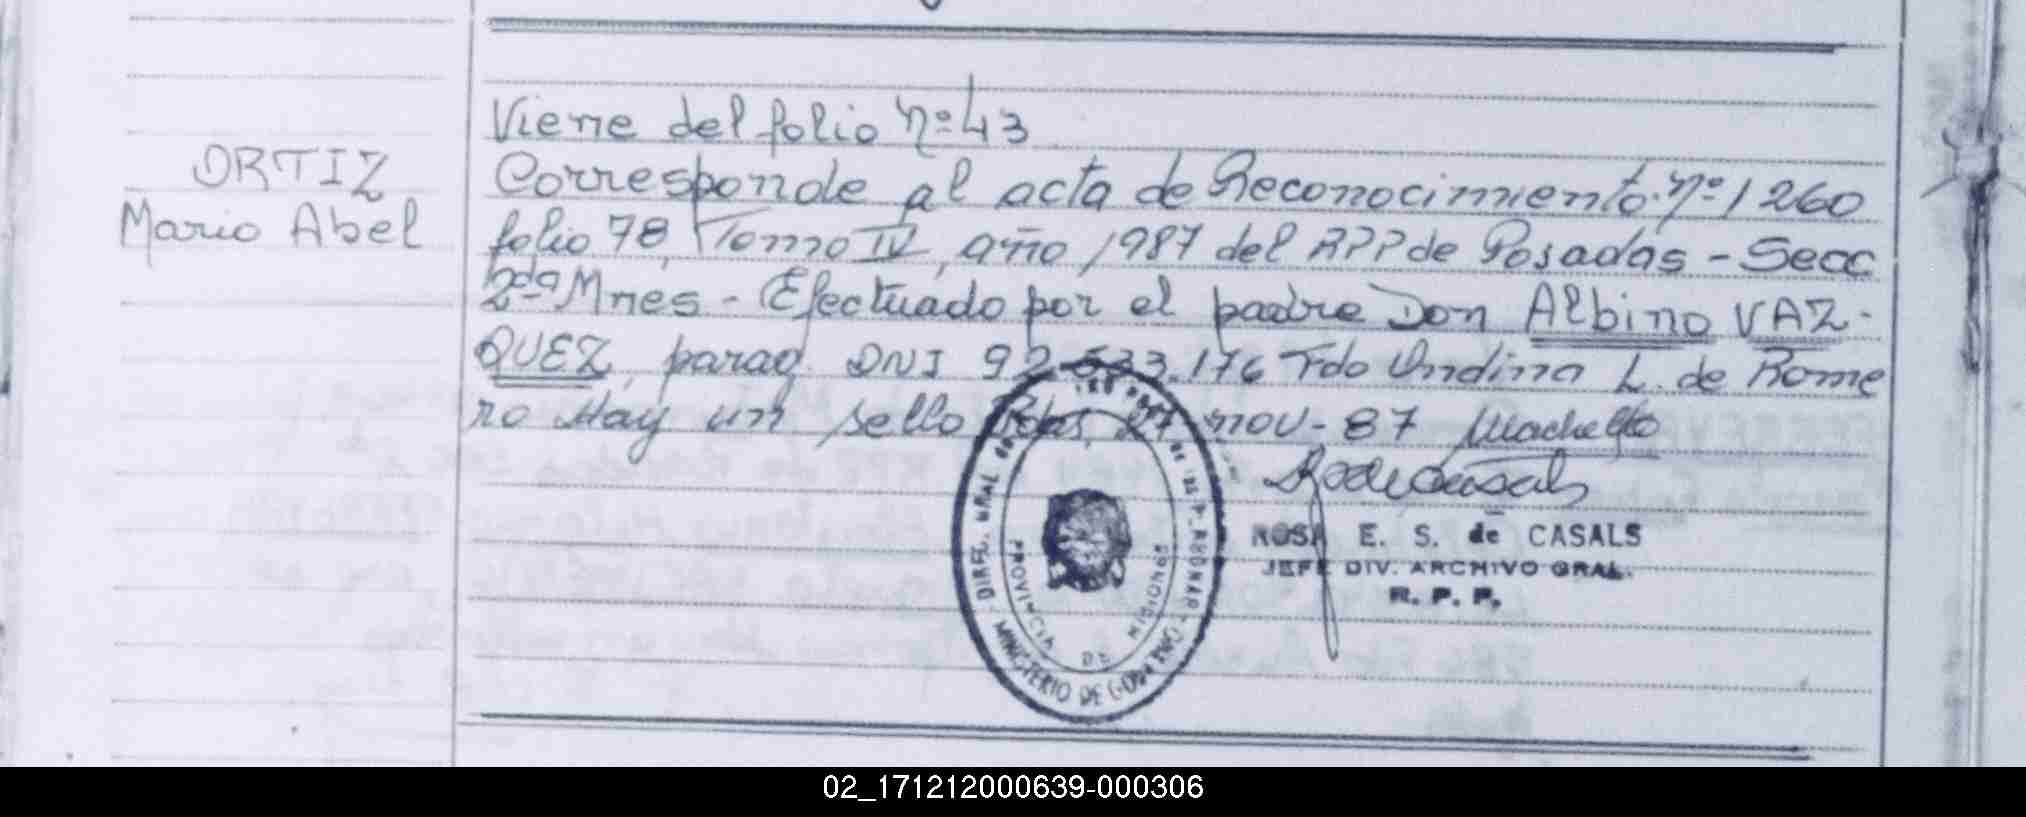 ORTIZ
Mario Abel
Viene del folio nº 43
Corresponde al acta de Reconocimiento. nº 1260
folio 78, Tomo IV, año 1987 del RPP de Posadas - Secc
2da Mnes - Efectuado por el padre Don Albino VAZ-
QUEZ, parag. DNI 92.533.176 Fdo Undina L. de Rome
ro Hay un sello Pdas, 27 nov - 87
ROSA E. S. de CASALS
JEFE DIV. ARCHIVO GRAL.
R. P. P.
DIREC. GRAL
MINISTERIO DE GOBIERNO
PROVINCIA DE MISIONES
02_171212000639-000306